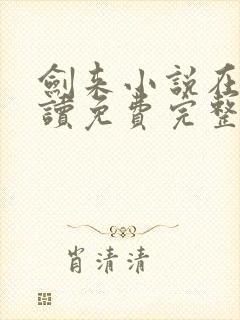 劍来小說在
讀免費完整
肖清清